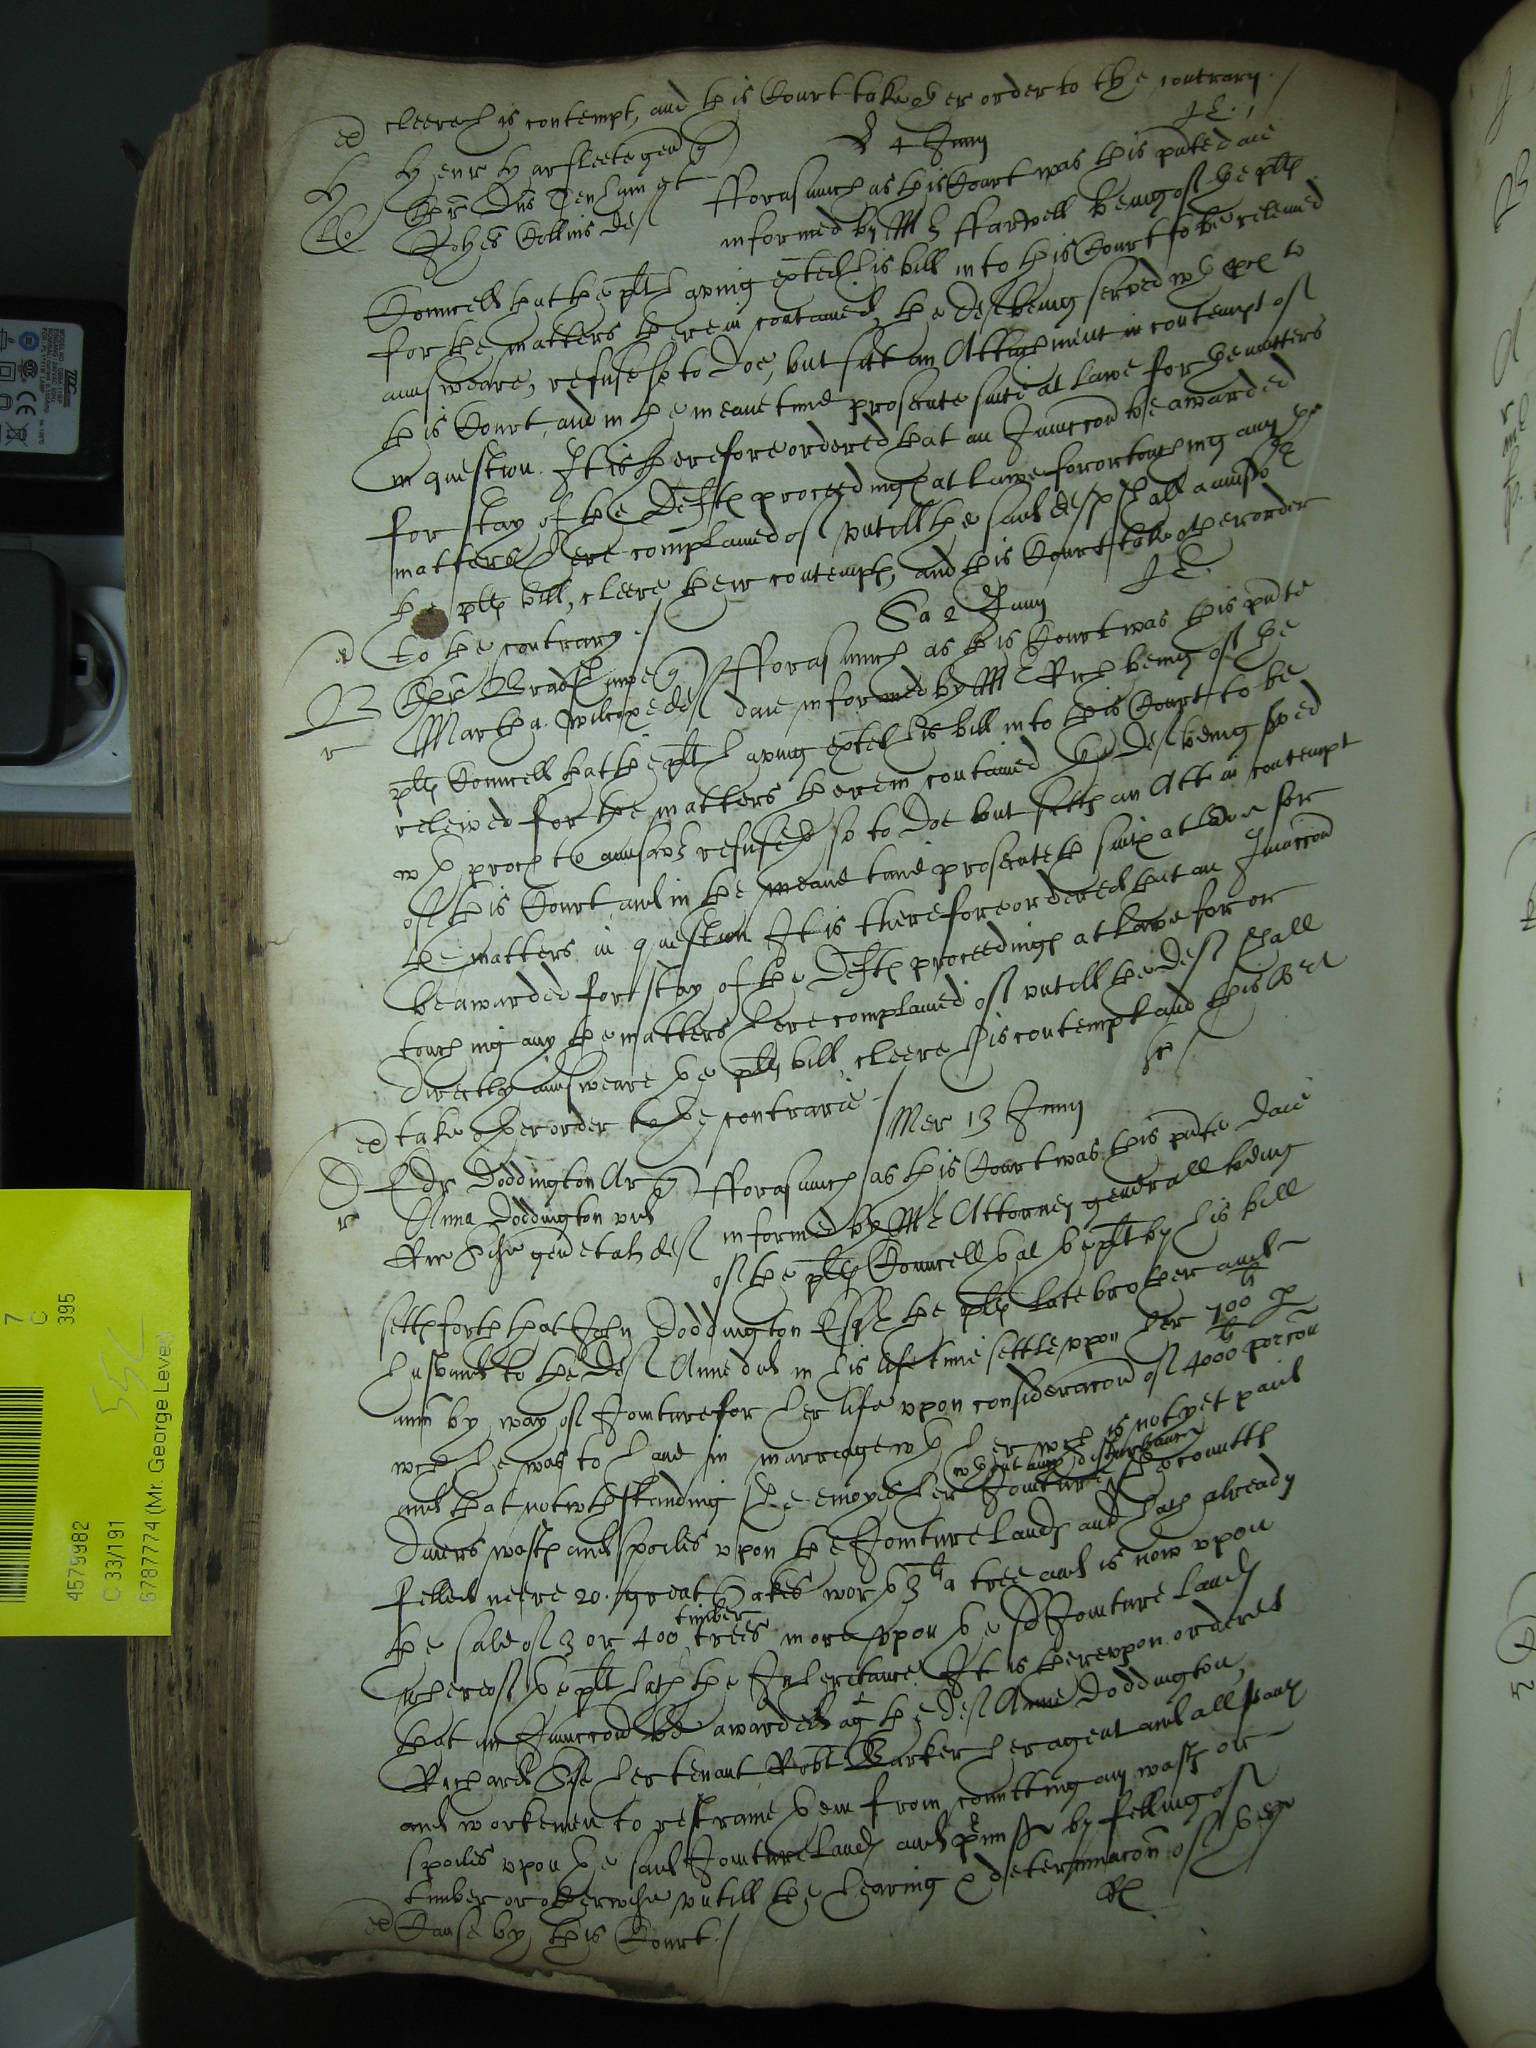 cleere his contempt, and this Court take other order to the contrary
ed
4 Junij
Henr Harfleete gen q
Johes Collins def
fforasmuch as this Court was this pnte daie
informed by Mr ffarwell being of the plts
Councell that the plt having exhted his bill into this Court to be releived
for the matters therein contained, the def being served wth proces to
aunsweare, refuseth so to doe, but sitt an Attachment in contempt of
this Court, and in the meane time prosecute suite at Lawe for the matters
in question. It is therefore ordered that an Iniuccon be awarded
for stay of the Defts proceedings at Lawe for or touching any the
matters here complained of untill the said def shall aunswe
the plts bill, cleere their contempts, and this Court take other order
to the contrary
ed
Sa 2 Junij
Martha Wilcoxe def
fforasmuch as this Court was this pnte
daie informed by Mr Rich being of the
plts Councell that the plt having exhted his bill into this Court to be
releived for the matters therein contained the def being served
wth proces to aunswer refuseth so to doe but sitteth an Att in contempt
of this Court and in the meane time prosecuteth suite at Lawe for
the matters in question It is therefore ordered that an Iniuccon
be awarded for stay of the Defts proceedings at Lawe for or
touching any the matters here complained of untill the def shall
directly aunsweare the plts bill, cleere his contempt and this Court
take other order to the contrarie
ed
Mer 13 Junij
Edr Doddington Ar q
Anna Doddington vid
Ric gen et al def
fforasmuch as this Court was this pnte daie
informed by Mr Attorney generall being
of the plts Councell that the plt by his bill
setteth forth that John Doddington Esqr the plts late brother and
husband to the def Anne did in his life time settle upon her 700 li p
ann by way of Jointure for her life upon consideracon of 4000 li porcon
wch he was to have in marriage wth her wch is not yet paid
and that notwthstanding she enioyed her Jointure wthout any disturbance she comitts
divers wasts and spoiles upon the Jointure lands and hath already
felled neere 20 great Oakes worth 3 li a tree and is now upon
the sale of 3 or 400 timber trees more upon the sd Jointure lands
whereof the plt hath the Inheritance. It is thereupon ordered
that an Iniuccon be awarded agt the def Anne Doddington,
Richard her tenant Robt Barker her agent and all
and workemen to restraine them from comitting any wasts or
spoiles upon the said Jointure lands and pmisses by felling of
timber or otherwise untill the hearing & determinacon of the
Cause by this Court
ed
7
C
395
55C
4579982
C 33/191
6787774 (Mr. George Leve)